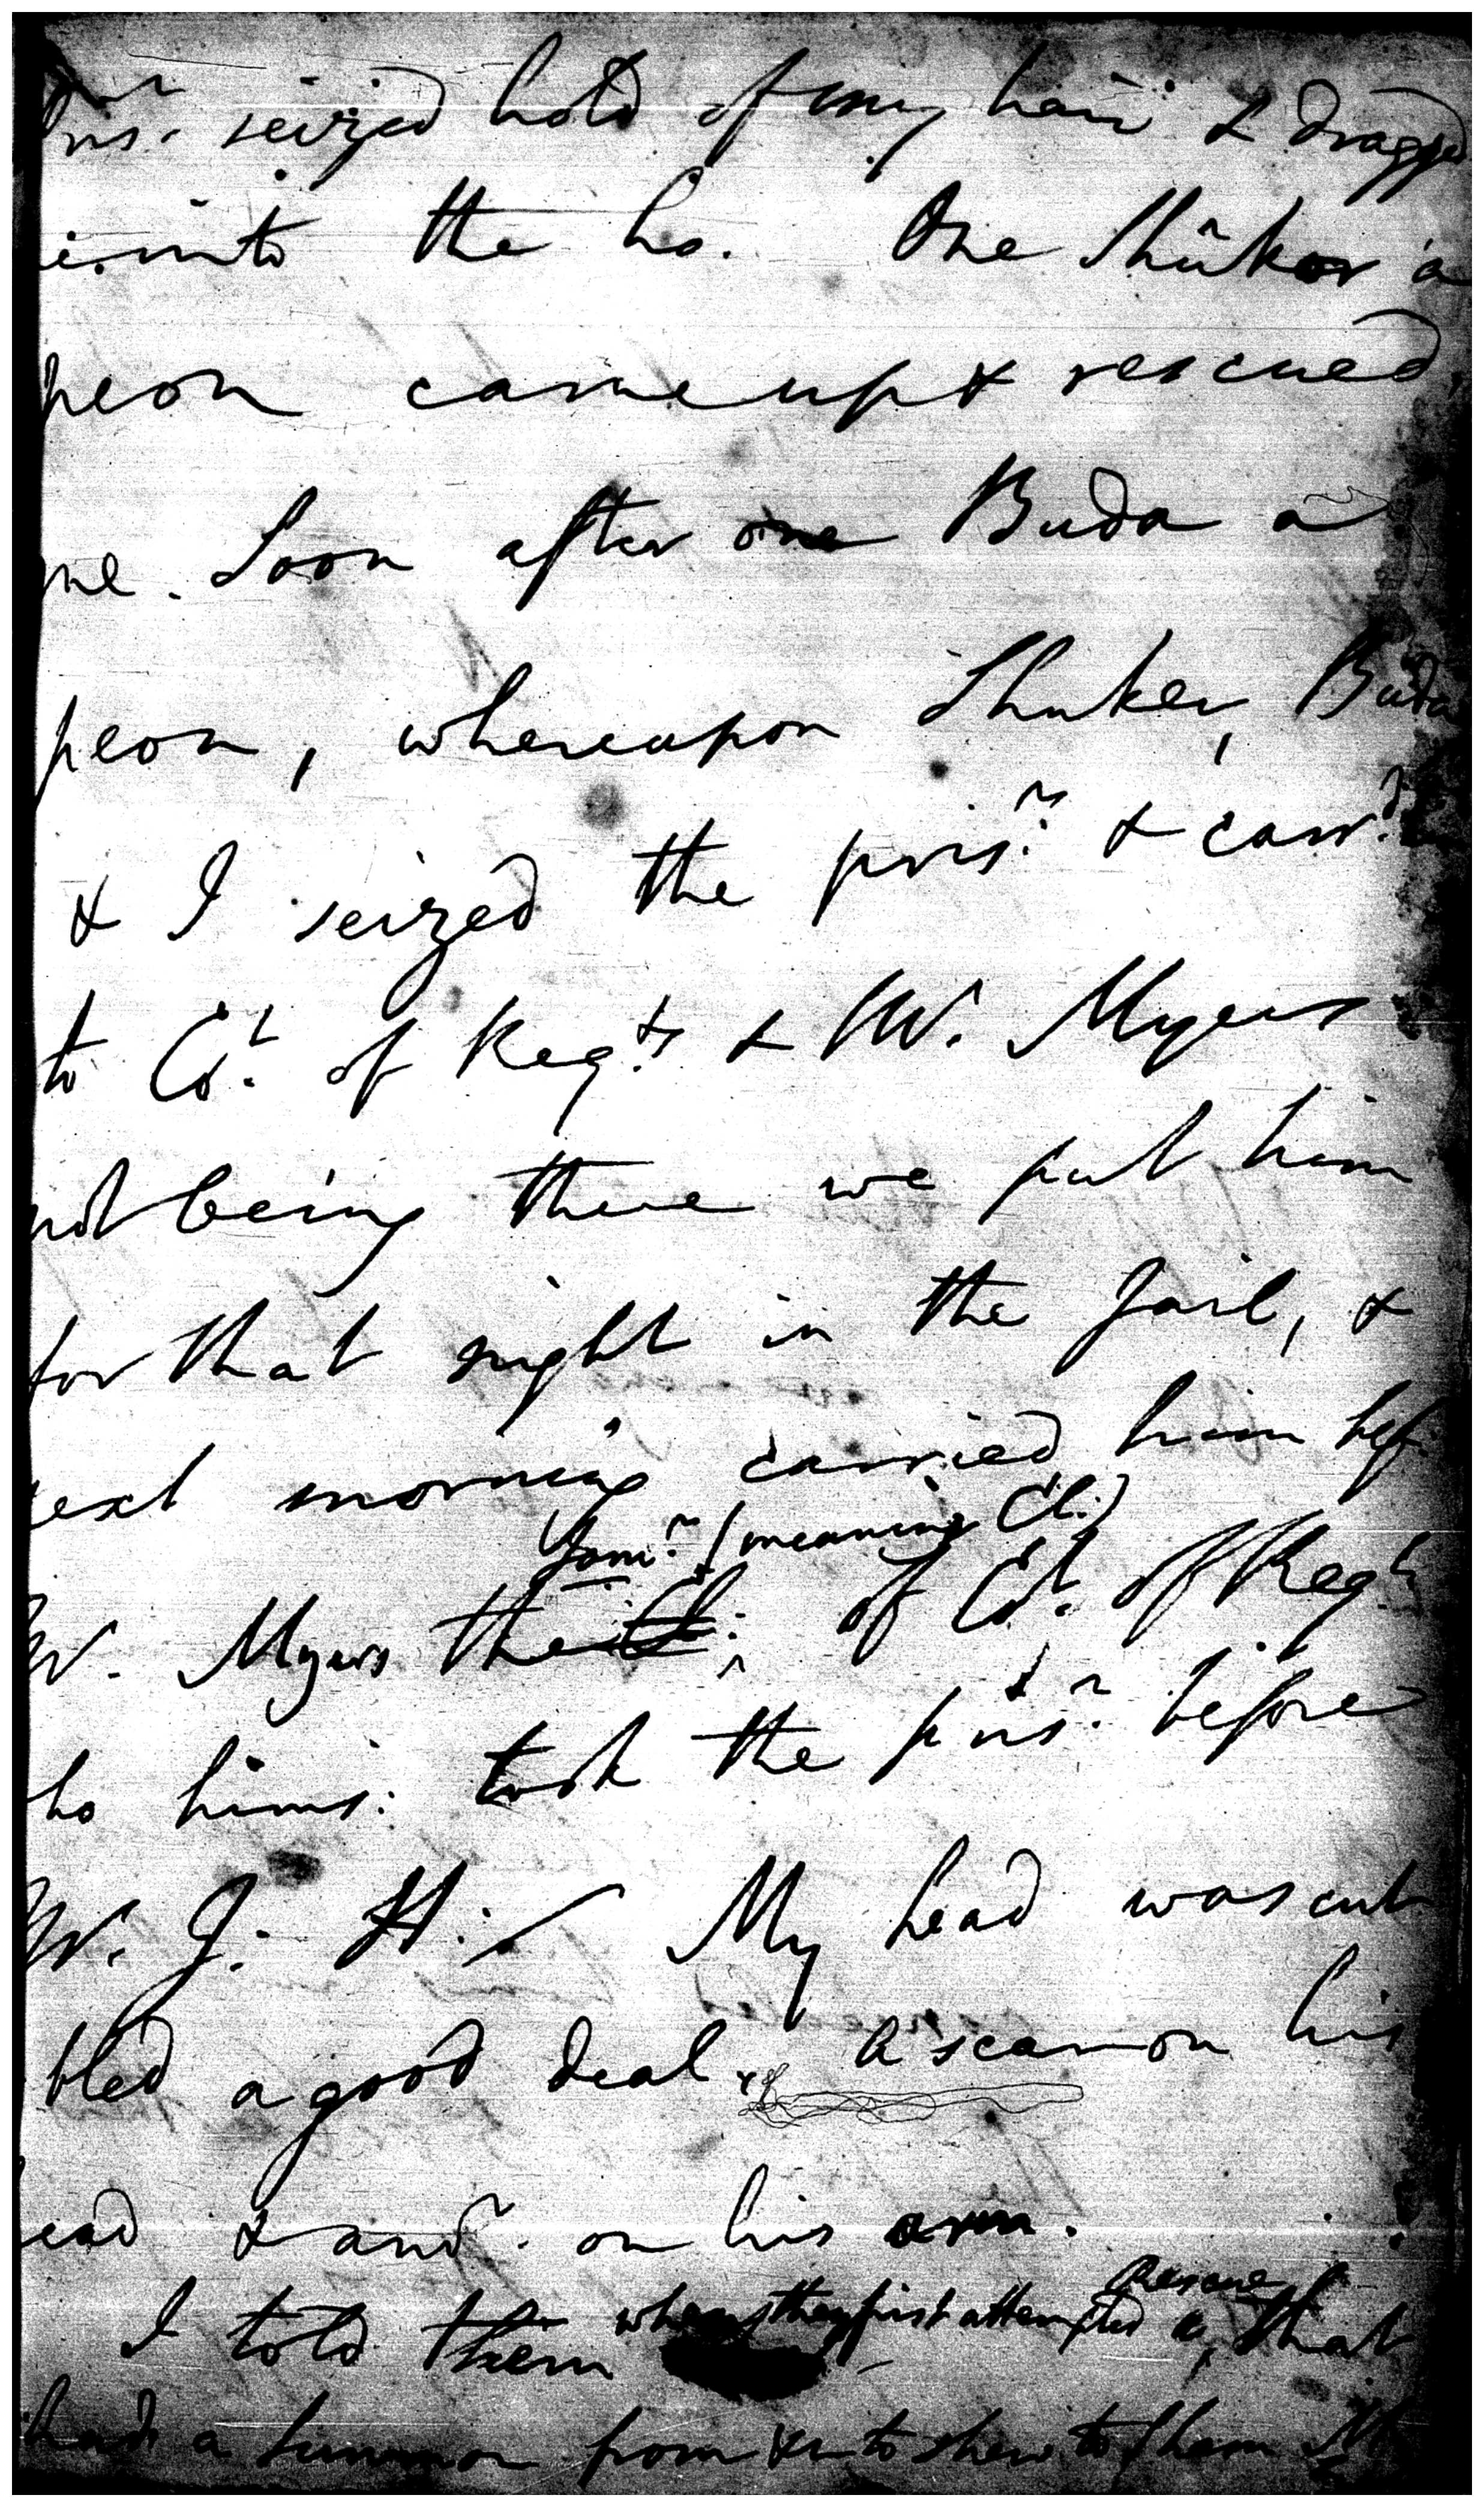 pris.r seized hold of my hair & dragged
me into the ho. One Shuker a
peon came up & rescued
me. Soon after one Buda a
peon, whereupon Shuker, Buda
& I seized the pris.r & carr.d
to Co.t of Req.ts & W. Myers
not being there we put him
for that night in the Jail, &
next morning carried him bef.
(meaning Cl.)
W. Myers the Cl: of Co.t of Req.ts
who hims: took the pris.r before
W. J. H:
My head was cut
bled a good deal. A scar on his
head & an.r on his arm.
rescue
I told them when they first attempted a that
had a summon from to shew to them